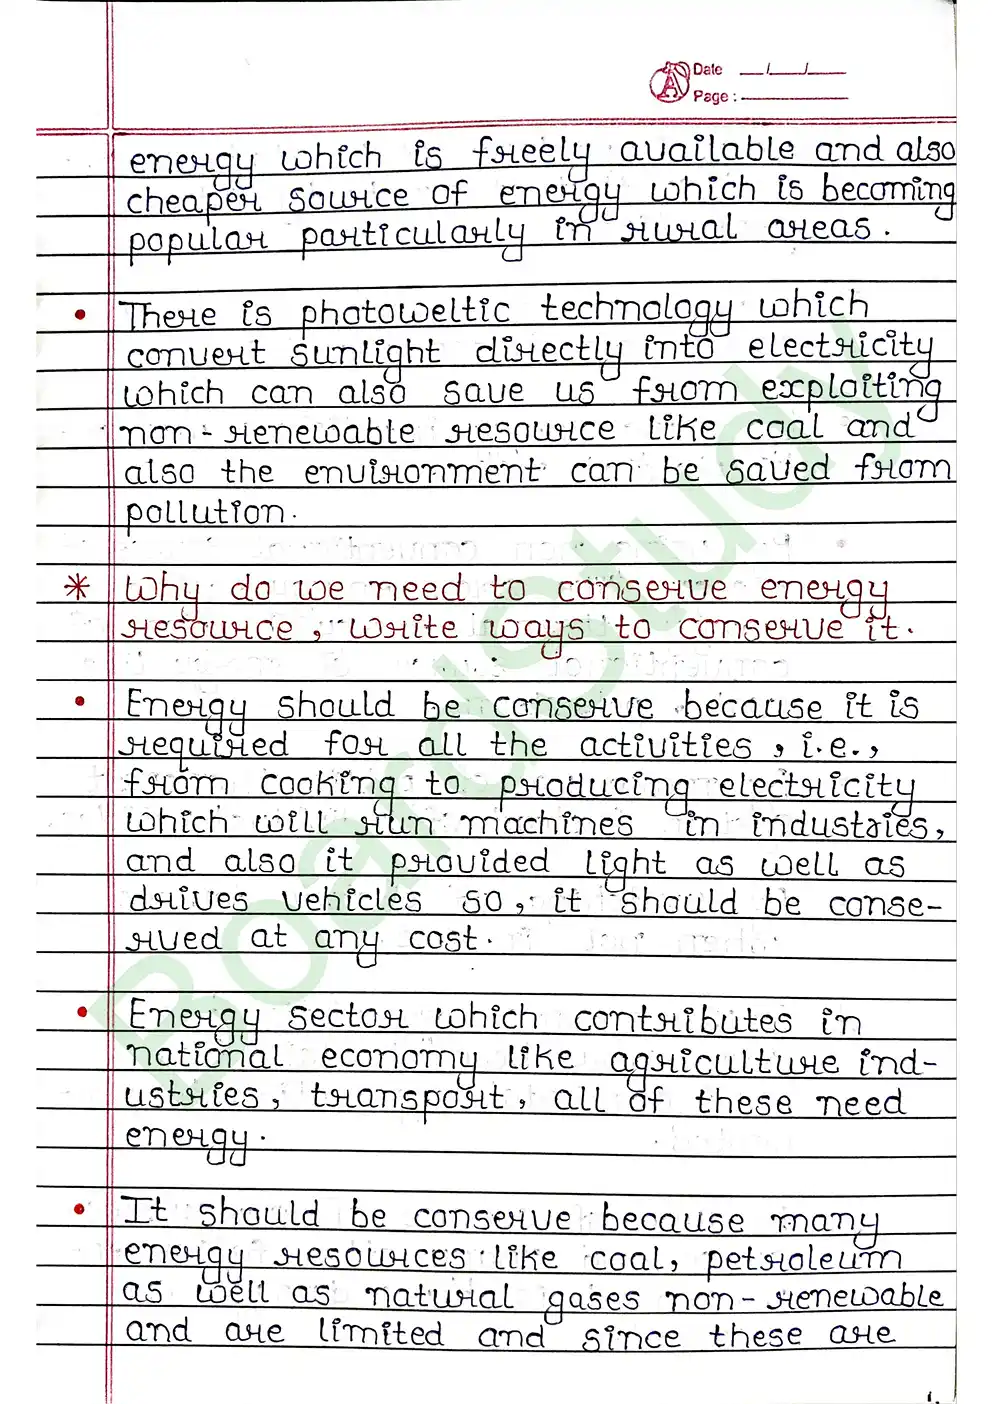 Date __/__/__
Page :
energy which is freely available and also
cheaper source of energy which is becoming
popular particularly in rural areas.
• There is photoweltic technology which
convert sunlight directly into electricity
which can also save us from exploiting
non-renewable resource like coal and
also the environment can be saved from
pollution.
* Why do we need to conserve energy
resource, write ways to conserve it.
• Energy should be conserve because it is
required for all the activities, i.e.,
from cooking to producing electricity
which will run machines in industries,
and also it provided light as well as
drives vehicles so, it should be conse-
rved at any cost.
• Energy sector which contributes in
national economy like agriculture ind-
ustries, transport, all of these need
energy.
• It should be conserve because many
energy resources like coal, petroleum
as well as natural gases non-renewable
and are limited and since these are
Board Study